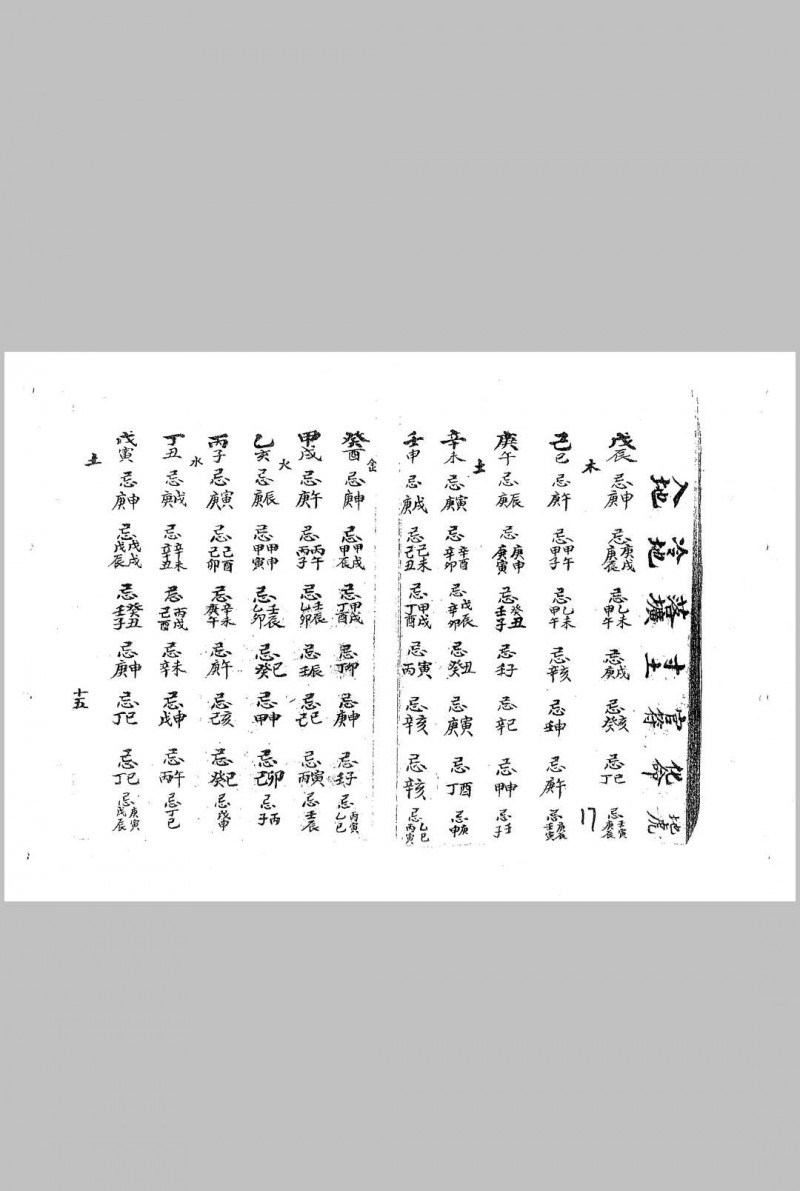 入地 冷地 落壙 主 官符 地虎
戊辰 忌庚申 忌庚戌庚辰 忌乙未甲午 忌庚戌 忌癸亥 忌丁巳 忌壬寅庚辰
木
己巳 忌庚午 忌甲午甲子 忌乙未甲午 忌辛亥 忌壬申 忌庚午 忌庚辰壬寅
17
庚午 忌庚辰 忌庚申庚寅 忌癸丑壬子 忌壬子 忌辛巳 忌甲申 忌壬子
土
辛未 忌庚寅 忌辛酉辛卯 忌戊辰辛卯 忌癸丑 忌庚寅 忌丁酉 忌庚申
壬申 忌庚戌 忌己未己丑 忌甲戌丁酉 忌丙寅 忌辛亥 忌辛亥 忌乙巳丙寅
癸酉 忌庚申 忌甲戌甲辰 忌甲戌丁酉 忌丁卯 忌庚申 忌壬子 忌丙寅乙巳
金
甲戌 忌庚午 忌丙午丙子 忌壬辰乙卯 忌壬辰 忌己巳 忌丙寅 忌壬辰
乙亥 忌庚辰 忌甲申甲寅 忌壬辰乙卯 忌癸巳 忌甲申 忌己卯 忌丙子
火
丙子 忌庚寅 忌己酉己卯 忌辛未庚午 忌庚午 忌己亥 忌癸巳 忌戊申
丁丑 忌庚戌 忌辛未辛丑 忌丙戌己酉 忌辛未 忌戊申 忌丙午 忌丁巳
水
戊寅 忌庚申 忌戊戌戊辰 忌癸丑壬子 忌庚申 忌丁巳 忌丁巳 忌庚寅戊辰
土
十五